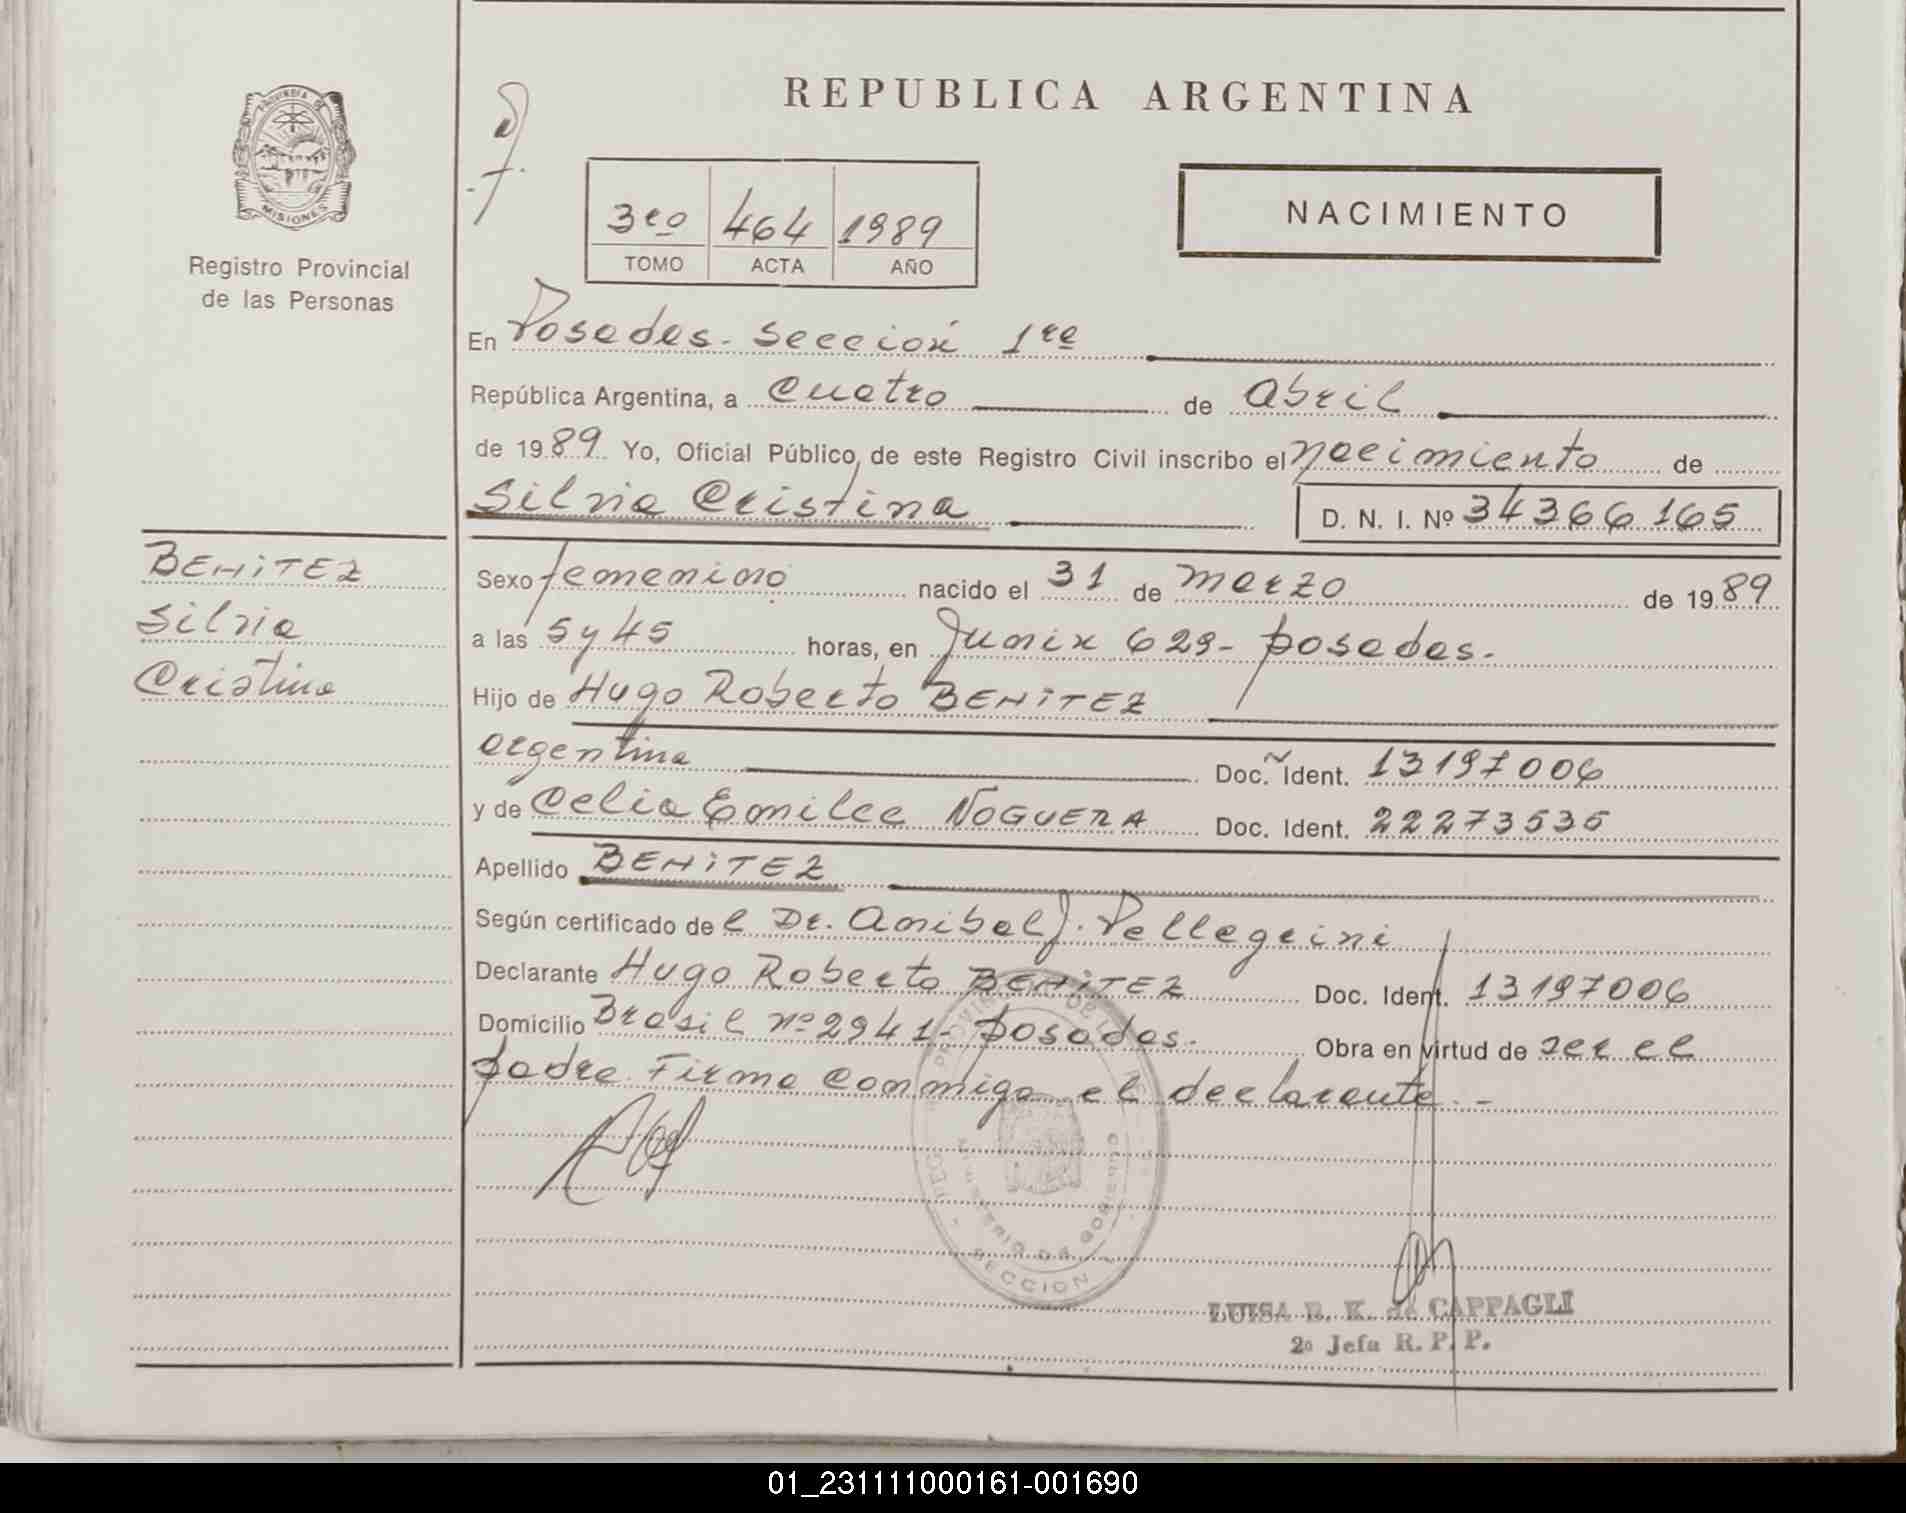 REPUBLICA ARGENTINA
PROVINCIA DE
MISIONES
Registro Provincial
de las Personas
3ro 464 1989
TOMO ACTA AÑO
NACIMIENTO
En Posadas. Sección 1ra
República Argentina, a cuatro de abril
de 1989 Yo, Oficial Público, de este Registro Civil inscribo el nacimiento de
Silvia Cristina D. N. I. Nº 34366165
BENiTEZ
Silvia
Cristina
Sexo femenino nacido el 31 de marzo de 1989
a las 5 y 45 horas, en Junin 629- posadas.
Hijo de Hugo Roberto BENiTEZ
argentina Doc. Ident. 13197006
y de Celia Emilce NOGUERA Doc. Ident. 22273535
Apellido BENiTEZ
Según certificado del Dr. Anibal J. Pellegrini
Declarante Hugo Roberto BENiTEZ Doc. Ident. 13197006
Domicilio Brasil nº 2941- posadas. Obra en virtud de ser el
padre. Firma conmigo el declarante.-
MINISTERIO DE GOBIERNO
SECCION
LUISA E. K. de CAPPAGLI
2º Jefa R. P. P.
01_231111000161-001690